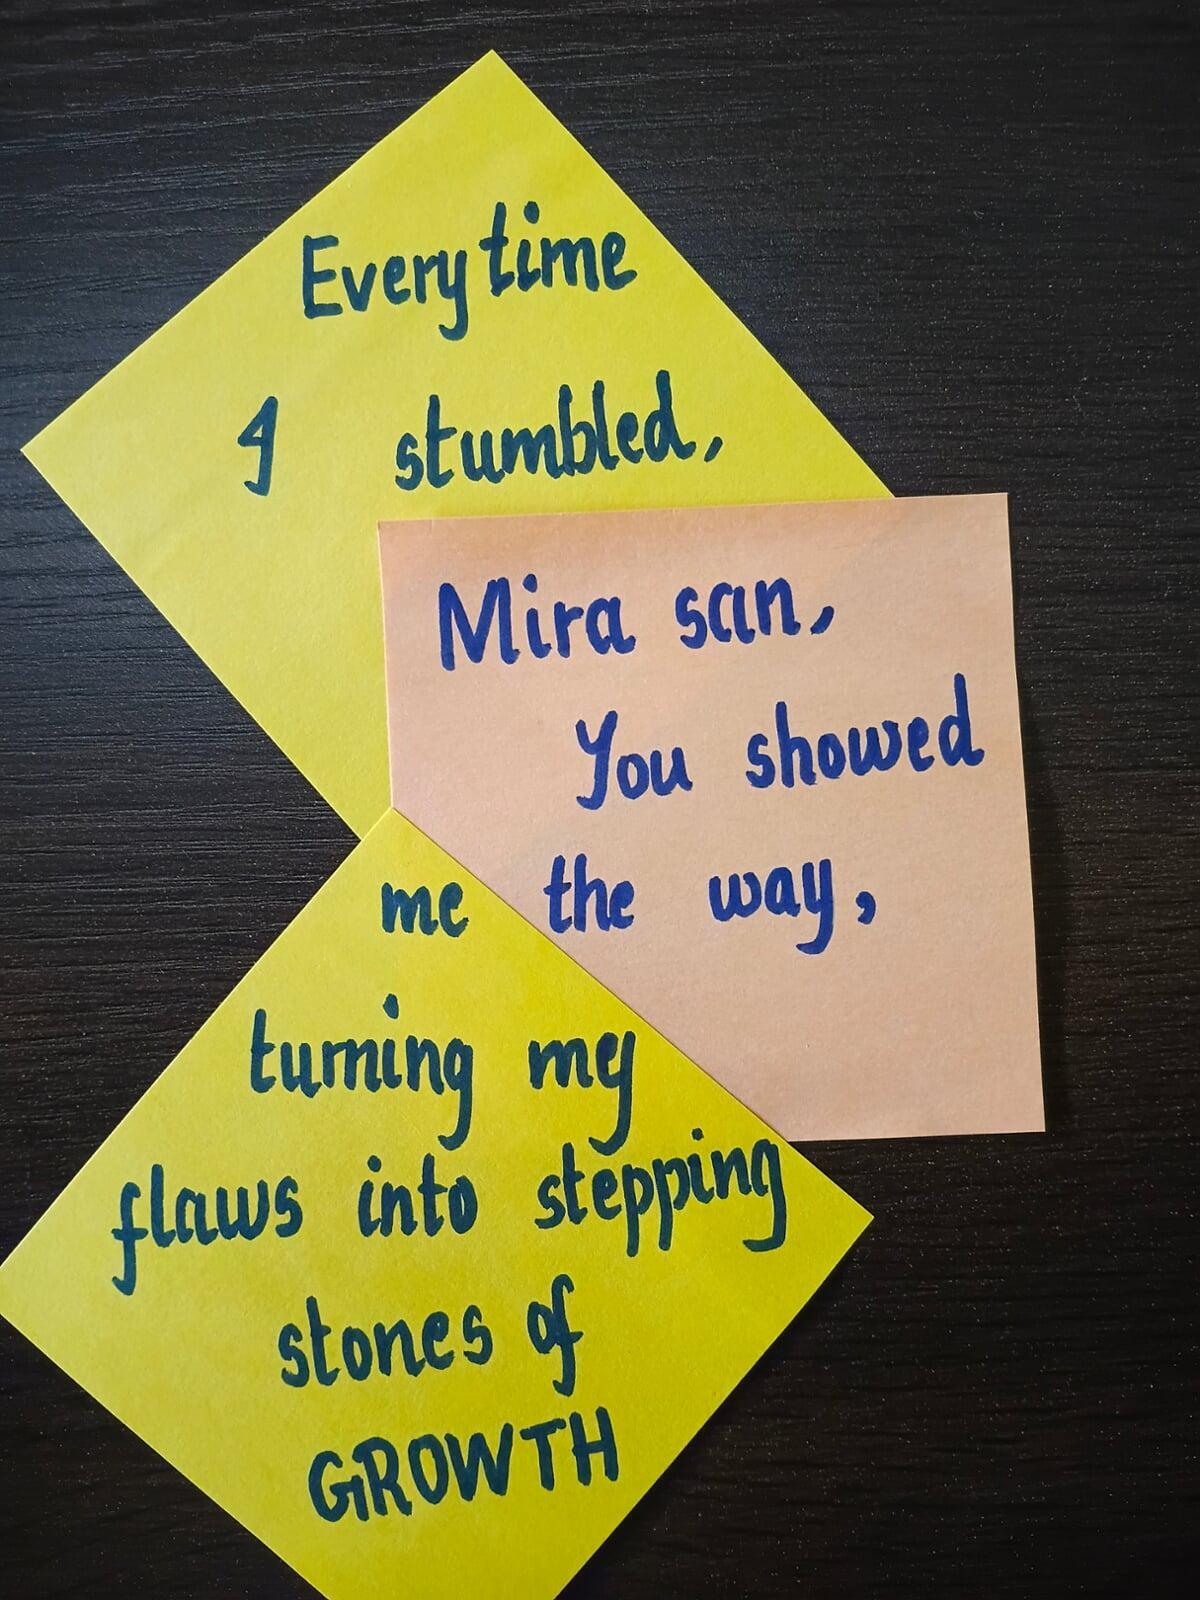 Every time
I stumbled,
Mira san,
You showed
me the way,
turning my
flaws into stepping
stones of
GROWTH